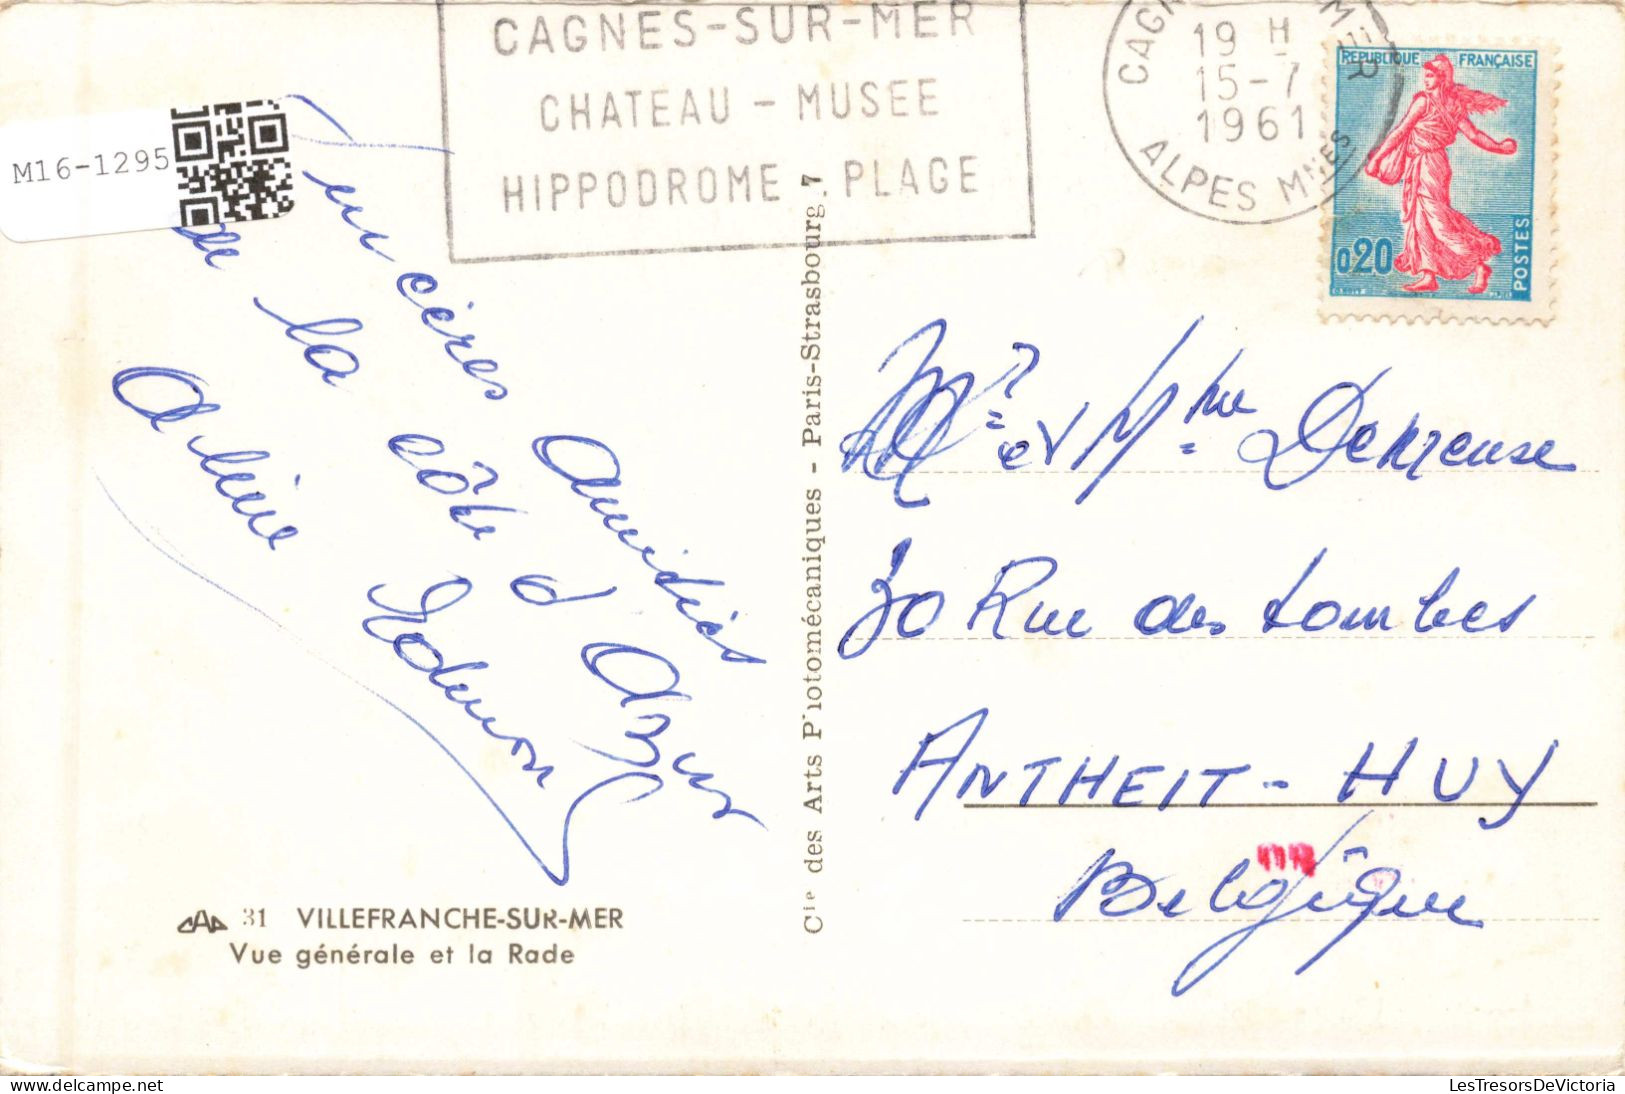 CAGNES-SUR-MER
CHATEAU - MUSEE
HIPPODROME PLAGE
19 H
15-7
1961
ALPES MMES
REPUBLIQUE FRANÇAISE
0,20
POSTES
M16-1295
Sincères Amitiés
de la côte d'Azur
Aline Edmon
Mr et Mme Dekreuse
30 Rue des tombes
ANTHEIT - HUY
Belgique
Cie des Arts Photomécaniques - Paris-Strasbourg 7
CAP 31 VILLEFRANCHE-SUR-MER
Vue générale et la Rade
LesTresorsDeVictoria